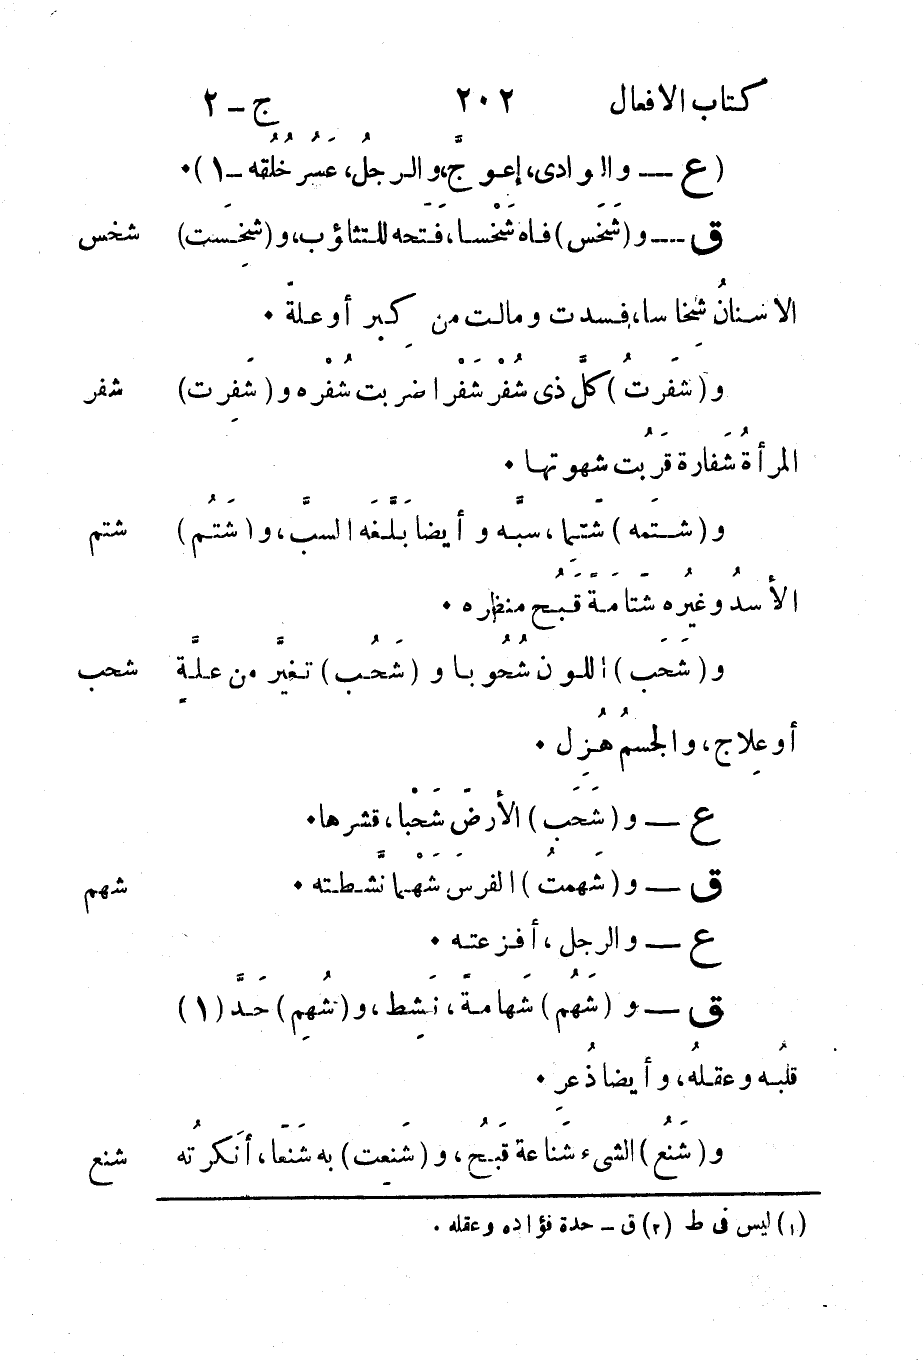 كتاب الافعال ٢٠٢ ج – ٢
(ع — والوادى، إعوجَّ، والرجلُ، عَسُر خُلُقه – ١)٠
ق — و (شَخَس) فاه شَخْسا، فَتَحه للتثاؤب، و (شخِسَت) شخس
الاسنانُ شِخاسا، فسدت ومالت من كِبر أوعلّة ٠
و (شفَرتُ) كلَّ ذى شُفْر شَفْرا ضربت شُفْره و (شفِرَت) شفر
المرأةُ شَفارة قرُبت شهوتها ٠
و (شتَمه) شَتْما، سبَّه وأيضا بَلَّغَه السبَّ، و (شَتُم) شتم
الأسدُ وغيرُه شَتامَةً قَبُح منظره ٠
و (شَحَب) اللون شُحُوبا و (شَحُب) تغيَّر من علّةٍ شحب
أوعِلاج، والجسمُ هُزِل ٠
ع — و (شَحَب) الأرضَ شَحْبا، قشرها٠
ق — و (شهَمتُ) الفرسَ شَهْما نشَّطته ٠ شهم
ع — والرجل، أفزعته ٠
ق — و (شَهُم) شَهامةً، نَشِط، و (شُهِم) حَدَّ (١)
قلبُه وعقلُه، وأيضا ذُعِر ٠
و (شَنُع) الشىء شَناعة قَبُح، و (شَنِعت) به شَنَعًا، أنكرتُه شنع
(١) ليس فى ط (٢) ق – حدة فؤاده وعقله ٠